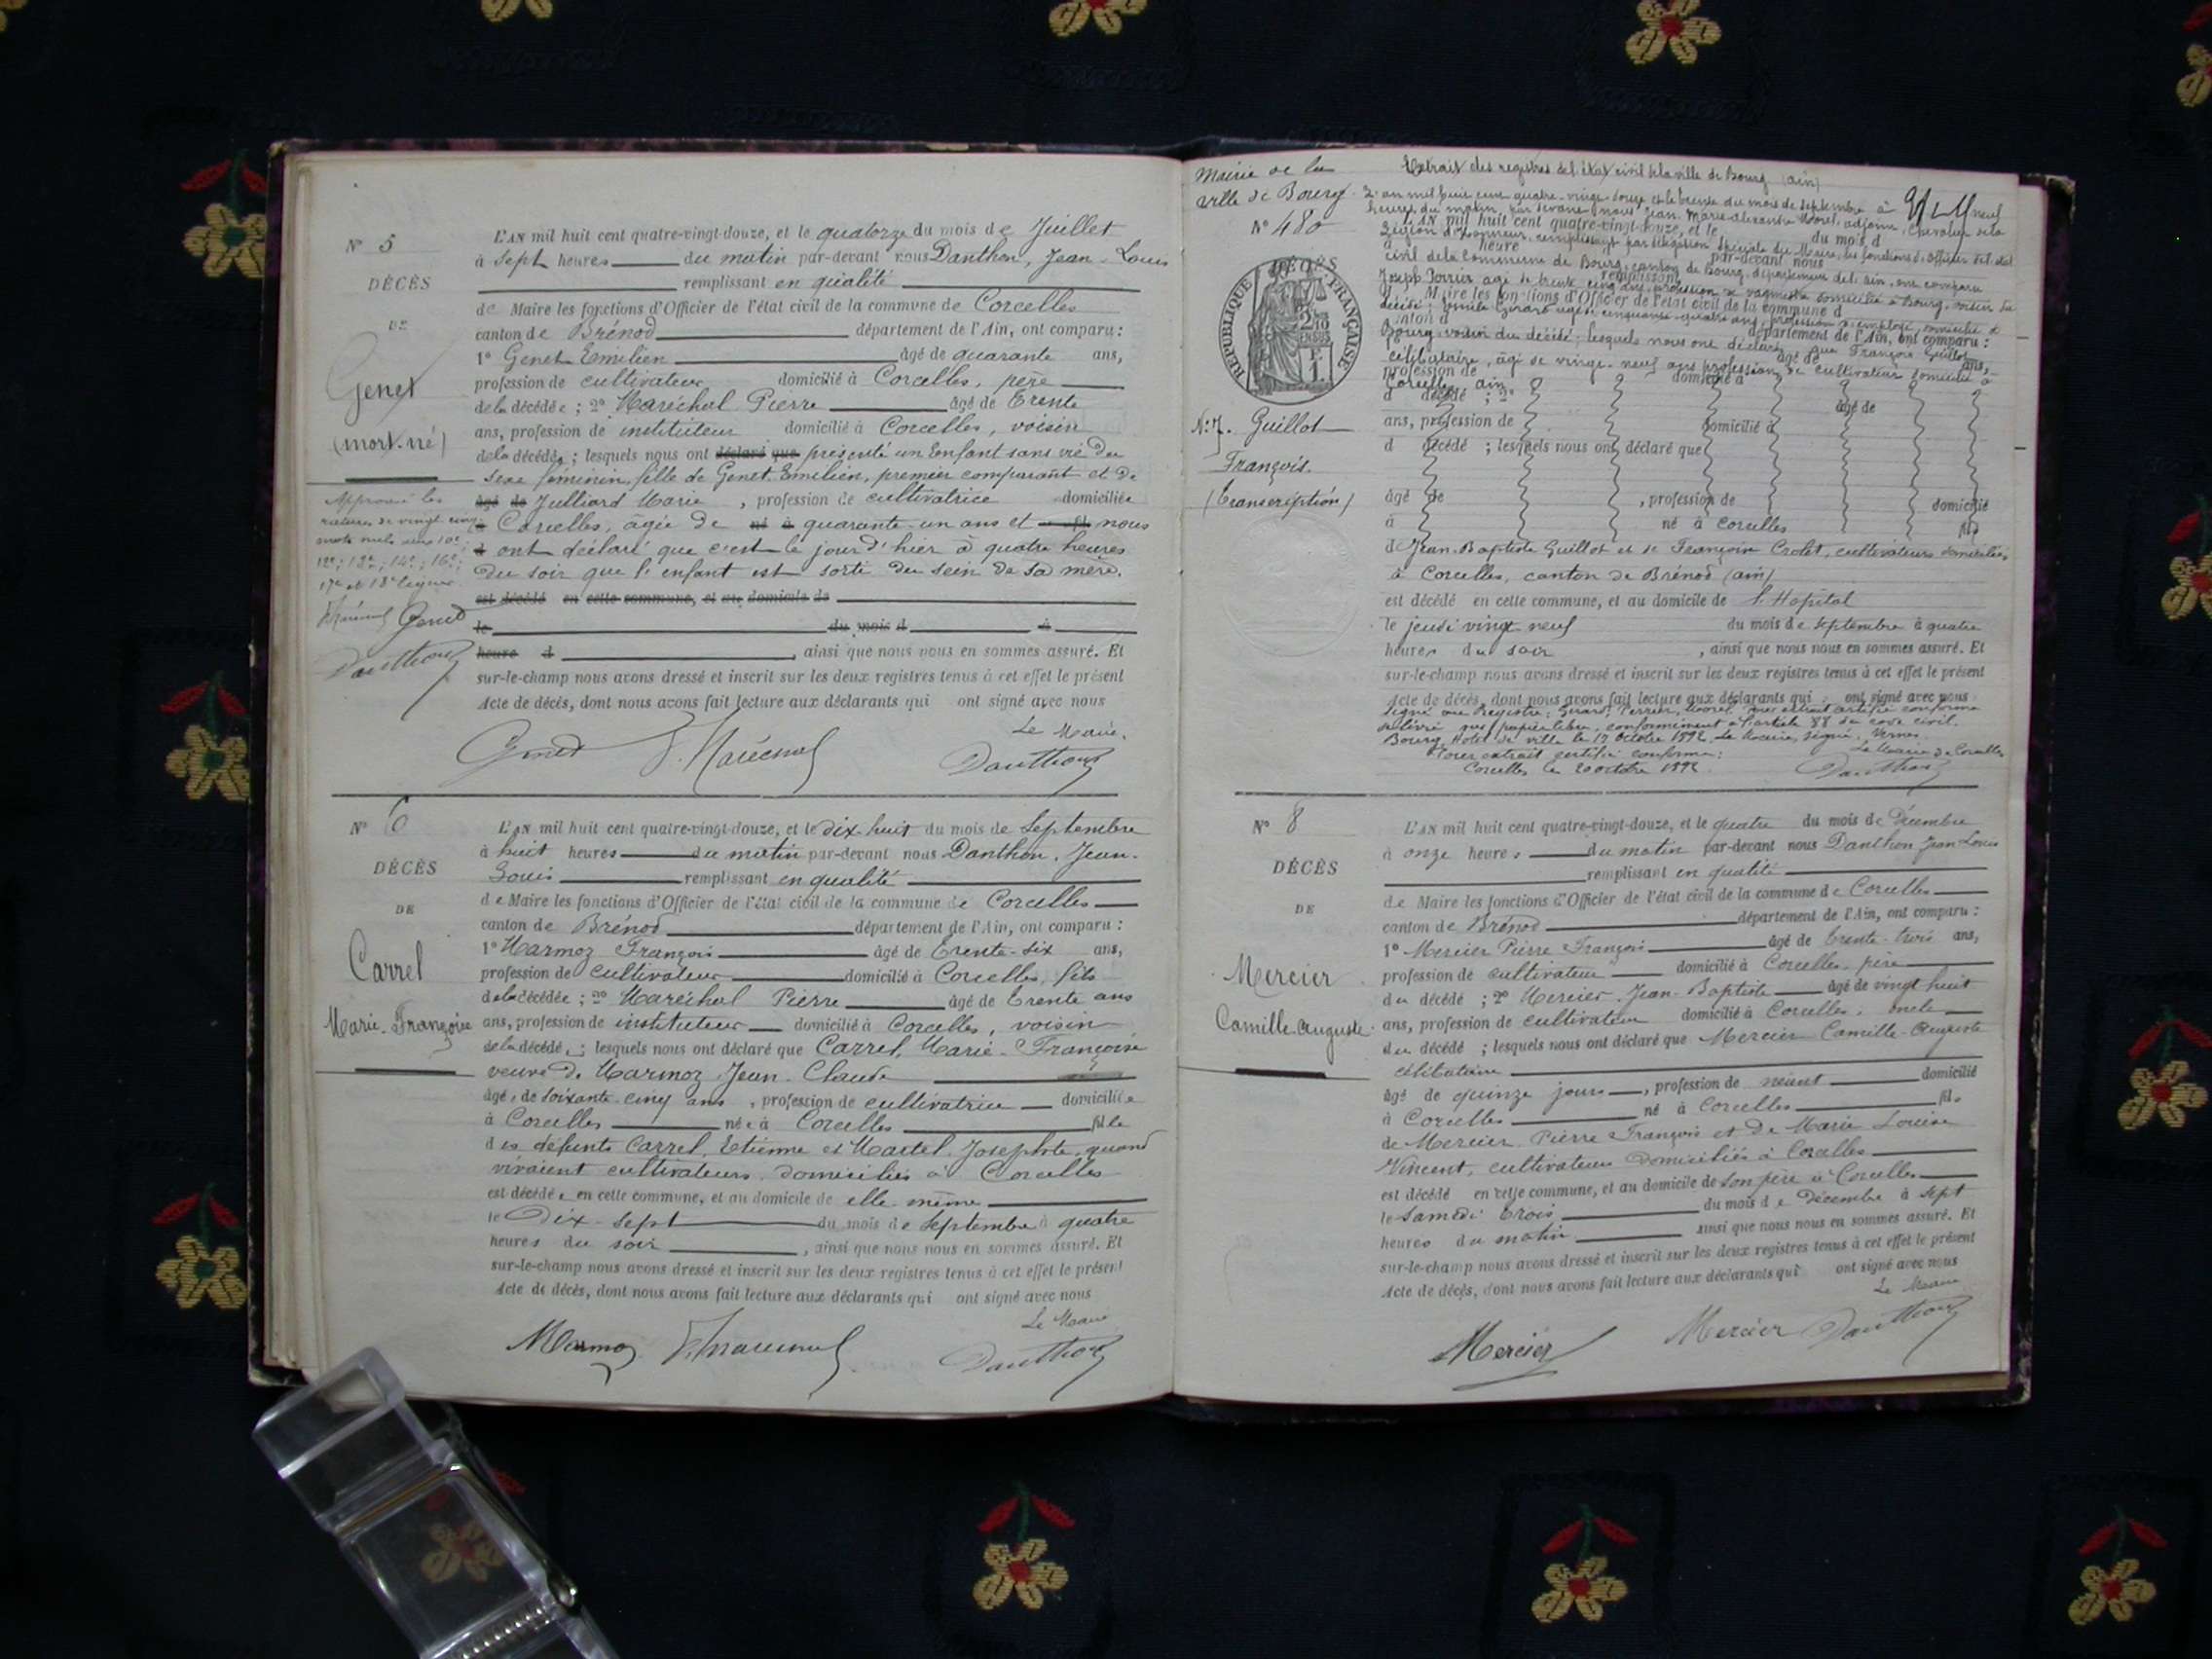 N° 5
DÉCÈS
DE
Genet
(mort-né)
Approuvé les
ratures de vingt cinq
mots nuls aux 10e,
12e; 13e; 14e; 16e;
17e et 18e lignes
Genet
Danthon
L'AN mil huit cent quatre-vingt-douze, et le quatorze du mois de Juillet
à sept heures du matin par-devant nous Danthon, Jean-Louis
remplissant en qualité
de Maire les fonctions d'Officier de l'état civil de la commune de Corcelles
canton de Brénod département de l'Ain, ont comparu :
1° Genet Emilien âgé de quarante ans,
profession de cultivateur domicilié à Corcelles, père
de la décédée ; 2° Maréchal Pierre âgé de trente
ans, profession de instituteur domicilié à Corcelles, voisin
de la décédée ; lesquels nous ont déclaré que présenté un Enfant sans vie du
sexe féminin, fille de Genet Emilien, premier comparant et de
âgé de Julliard Marie , profession de cultivatrice domiciliée
à Corcelles, âgée de né à quarante-un ans et fil nous
d ont déclaré que c'est le jour d'hier à quatre heures
du soir que l'enfant est sorti du sein de sa mère.
est décédé en cette commune, et au domicile de
le du mois d à
heure d , ainsi que nous nous en sommes assuré. Et
sur-le-champ nous avons dressé et inscrit sur les deux registres tenus à cet effet le présent
Acte de décès, dont nous avons fait lecture aux déclarants qui ont signé avec nous
Le Maire,
Genet P. Maréchal Danthon
N° 6
DÉCÈS
DE
Carrel
Marie-Françoise
L'AN mil huit cent quatre-vingt-douze, et le dix-huit du mois de Septembre
à huit heures du matin par-devant nous Danthon, Jean-
Louis remplissant en qualité
de Maire les fonctions d'Officier de l'état civil de la commune de Corcelles
canton de Brénod département de l'Ain, ont comparu :
1° Marmoz François âgé de trente-six ans,
profession de cultivateur domicilié à Corcelles, fils
de la décédée ; 2° Maréchal Pierre âgé de trente ans
ans, profession de instituteur domicilié à Corcelles, voisin
de la décédée ; lesquels nous ont déclaré que Carrel, Marie-Françoise
veuve de Marmoz Jean-Claude
âgée de soixante-cinq ans , profession de cultivatrice domiciliée
à Corcelles née à Corcelles fille
des défunts Carrel, Etienne et Martel, Josephte, quand
vivaient cultivateurs domiciliés à Corcelles
est décédée en cette commune, et au domicile de elle-même
le Dix-sept du mois de septembre à quatre
heures du soir , ainsi que nous nous en sommes assuré. Et
sur-le-champ nous avons dressé et inscrit sur les deux registres tenus à cet effet le présent
Acte de décès, dont nous avons fait lecture aux déclarants qui ont signé avec nous
Le Maire
Marmoz P. Maréchal Danthon
Mairie de la
ville de Bourg
N° 480
DÉCÈS
RÉPUBLIQUE FRANÇAISE
N: 7. Guillot
François.
(transcription)
Extrait des registres de l'état civil de la ville de Bourg (ain)
L'an mil huit cent quatre-vingt-douze et le trente du mois de septembre à neuf
heures du matin, par devant nous Jean-Marie-Alexandre adjoint, Chevalier de la
L'AN mil huit cent quatre-vingt-douze, et le du mois d
Légion d'honneur, remplissant par délégation spéciale du Maire, les fonctions d'officier de l'état
à heure par-devant nous
civil de la Commune de Bourg, canton de Bourg, département de l'ain, ont comparu
remplissant
Joseph Perrier agé de trente cinq ans, profession de domicilié à Bourg, voisin du
d Maire les fonctions d'Officier de l'état civil de la commune d
décédé; Girard agé de cinquante-quatre ans, profession d'employé, domicilié à
canton d département de l'Ain, ont comparu :
Bourg, voisin du décédé; lesquels nous ont déclaré que François Guillot
1° âgé de ans,
célibataire, âgé de vingt-neuf ans profession de cultivateur domicilié à
profession de domicilié à
Corcelles, ain
d décédé ; 2° âgé de
ans, profession de domicilié à
d décédé ; lesquels nous ont déclaré que
âgé de , profession de domicilié
à né à Corcelles fils
de Jean-Baptiste Guillot et de Françoise Crolet, cultivateurs domiciliés
à Corcelles, canton de Brénod (ain)
est décédé en cette commune, et au domicile de l'Hopital
le jeudi vingt neuf du mois de septembre à quatre
heures du soir , ainsi que nous nous en sommes assuré. Et
sur-le-champ nous avons dressé et inscrit sur les deux registres tenus à cet effet le présent
Acte de décès, dont nous avons fait lecture aux déclarants qui ont signé avec nous
signé au Registre: Girard, Perrier, Pour extrait certifié conforme
délivré sur papier libre, conformément à l'article 88 du code civil.
Bourg, Hotel de ville le 17 octobre 1892, Le Maire, signé,
Pour extrait certifié conforme: Le Maire de Corcelles
Corcelles le 20 octobre 1892. Danthon
N° 8
DÉCÈS
DE
Mercier
Camille-Auguste
L'AN mil huit cent quatre-vingt-douze, et le quatre du mois de Décembre
à onze heures du matin par-devant nous Danthon Jean-Louis
remplissant en qualité
de Maire les fonctions d'Officier de l'état civil de la commune de Corcelles
canton de Brénod département de l'Ain, ont comparu :
1° Mercier Pierre François âgé de trente-trois ans,
profession de cultivateur domicilié à Corcelles, père
du décédé ; 2° Mercier Jean-Baptiste âgé de vingt huit
ans, profession de cultivateur domicilié à Corcelles, oncle
du décédé ; lesquels nous ont déclaré que Mercier Camille-Auguste
célibataire
âgé de quinze jours , profession de néant domicilié
à Corcelles né à Corcelles fils
de Mercier Pierre François et de Marie Louise
Vincent, cultivateurs domiciliés à Corcelles
est décédé en cette commune, et au domicile de son père à Corcelles
le samedi trois du mois de Décembre à sept
heures du matin ainsi que nous nous en sommes assuré. Et
sur-le-champ nous avons dressé et inscrit sur les deux registres tenus à cet effet le présent
Acte de décès, dont nous avons fait lecture aux déclarants qui ont signé avec nous
Le Maire
Mercier Mercier Danthon